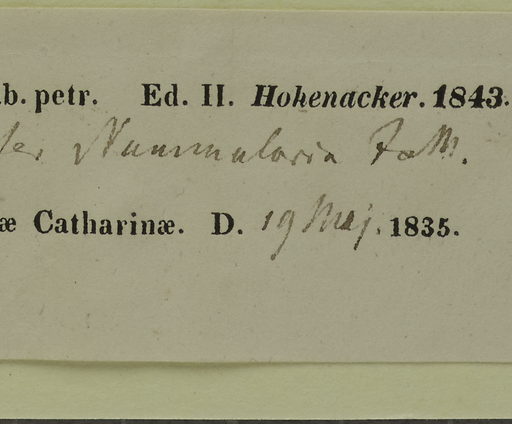 b. petr. Ed. II. Hohenacker. 1843.
Nummularia
æ Catharinæ. D. 19 Maj. 1835.